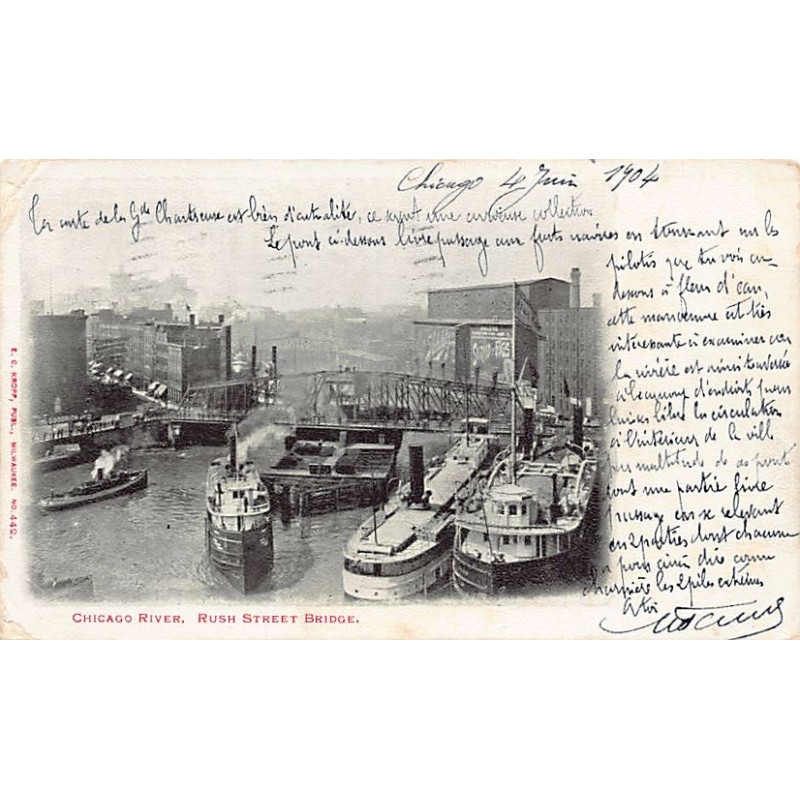 Chicago 4 Juin 1904
Ta carte de la Gde Chartreuse est bien d'actualité, ce serait une curieuse collection
Le pont ci-dessous livre passage aux forts navires en tournant sur les
pilotis que tu vois au-
dessous à fleur d'eau,
cette manoeuvre est très
intéressante à examiner
la rivière est ainsi traversée
à beaucoup d'endroits pour
laisser libre la circulation
à l'intérieur de la ville
par multitude de ponts
dont une partie livre
passage en se relevant
en 2 parties dont chacune
a pour ainsi dire comme
charnière les 2 piles extrêmes
A toi
E. C. KROPP, PUBL., MILWAUKEE. NO. 442.
CHICAGO RIVER, RUSH STREET BRIDGE.